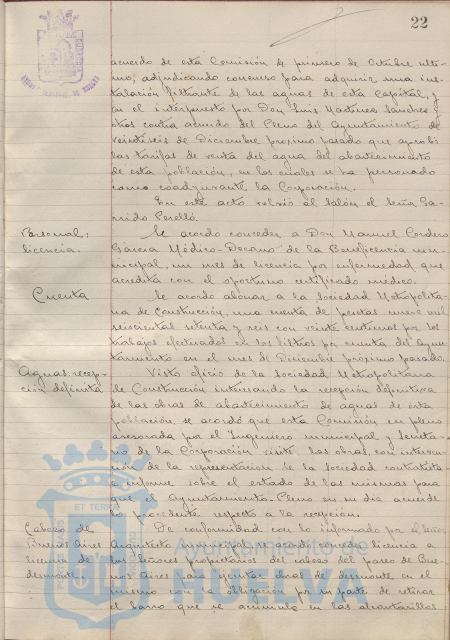 22
acuerdo de esta Comisión de primero de Octubre ulti-
mo, adjudicando concurso para adquirir una ins-
talación filtrante de las aguas de esta Capital, y
en el interpuesto por Don Luis Martinez Sanchez y
otros contra acuerdo del Pleno del Ayuntamiento de
veintiseis de Diciembre próximo pasado que aprobó
las tarifas de venta del agua del abastecimiento
de esta población, en los cuales se ha personado
como coadyuvante la Corporación.
En este acto volvió al Salón el Señor Ga-
rrido Perelló.
Personal;
licencia.
Se acordó conceder a Don Manuel Cordero
Garcia Médico-Decano de la Beneficencia mu-
nicipal, un mes de licencia por enfermedad que
acredita con el oportuno certificado médico.
Cuenta
Se acordó abonar a la Sociedad Metropolita-
na de Construcción, una cuenta de pesetas nueve mil
seiscientas setenta y seis con veinte centimos por los
trabajos efectuados en los filtros por cuenta del Ayun-
tamiento en el mes de Diciembre próximo pasado.
Aguas: recep-
ción definitiva
Visto oficio de la Sociedad Metropolitana
de Construcción interesando la recepción definitiva
de las obras de abastecimiento de aguas de esta
población, se acordó que esta Comisión en pleno
asesorada por el Ingeniero municipal y Secreta-
rio de la Corporación visite las obras, con interven-
ción de la representación de la Sociedad contratista
e informe sobre el estado de las mismas para
que el Ayuntamiento-Pleno en su dia acuerde
lo procedente respecto a la recepción.
Cabezo de
Buenos Aires
licencia de
desmonte.
De conformidad con lo informado por el Señor
Arquitecto municipal se acordó conceder licencia a
los Señores propietarios del cabezo del paseo de Bue-
nos Aires para ejecutar obras de desmonte en el
mismo con la obligación por su parte de retirar
el barro que se acumule en las alcantarillas
ET TERRA
Ayuntamiento de
HUELVA